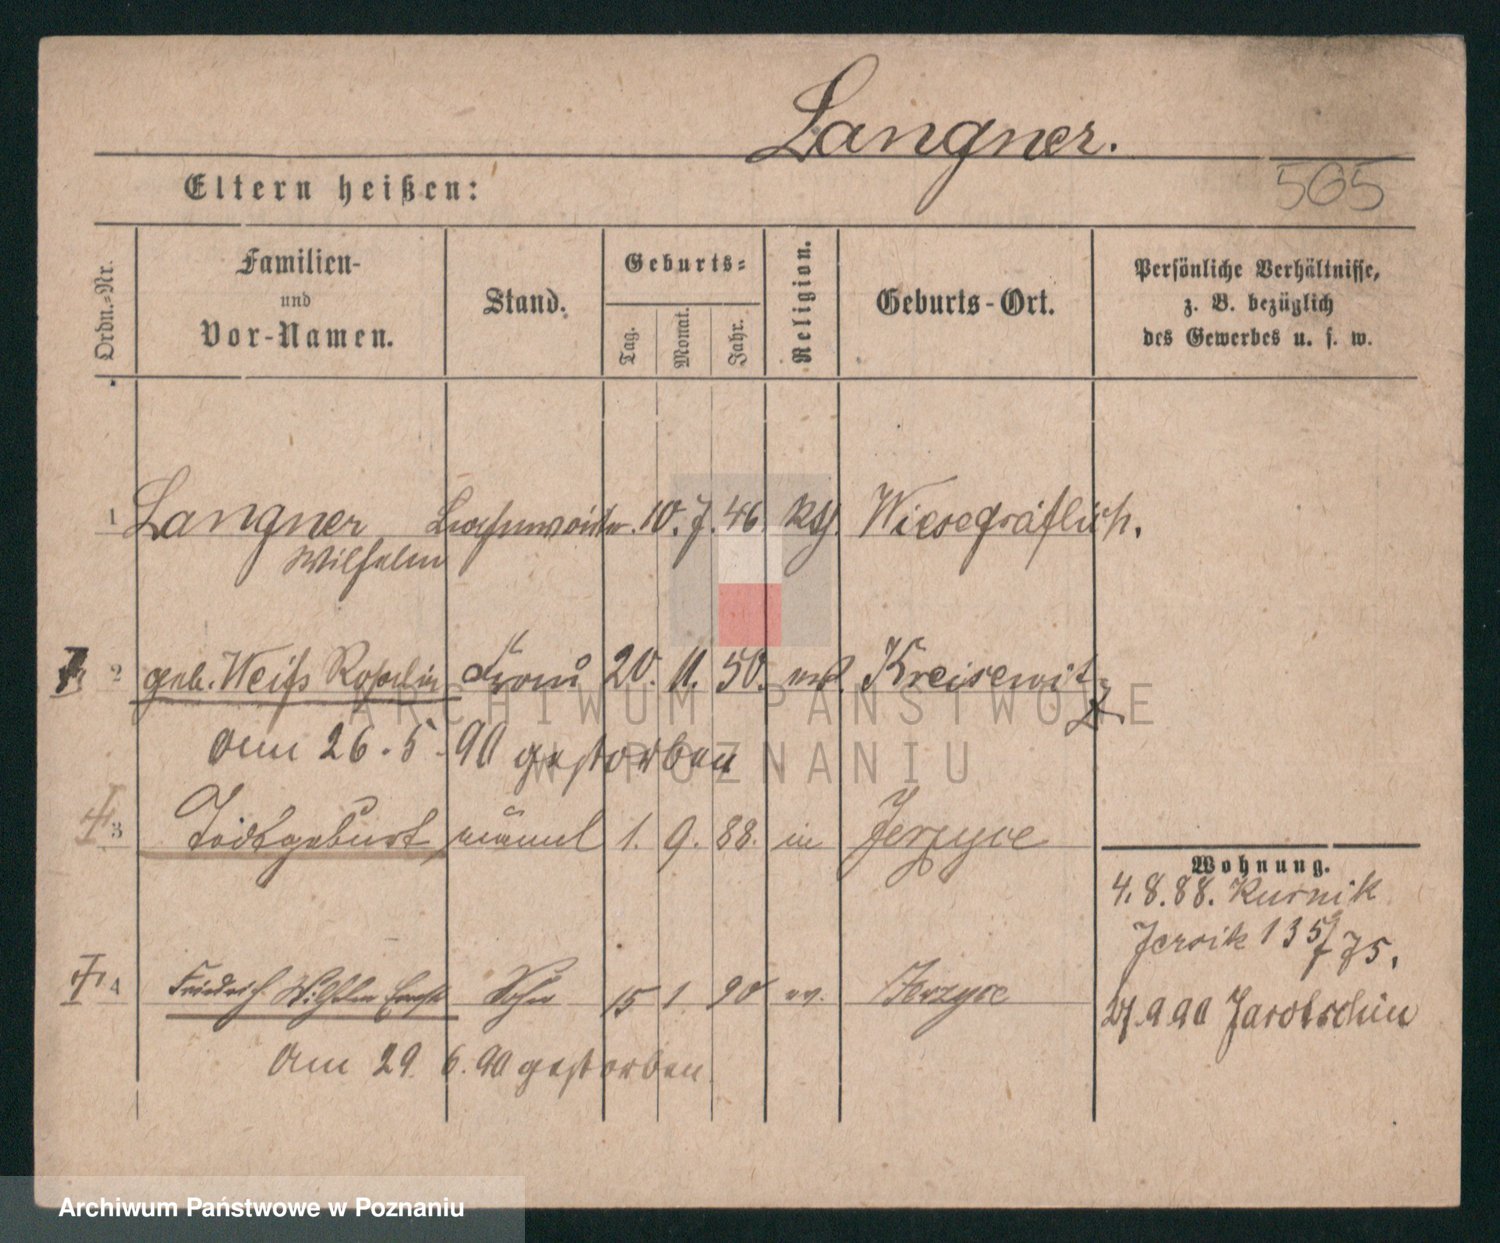 Langner.
Eltern heißen:
505
Ordn.-Nr.
Familien-
und
Vor-Namen.
Stand.
Geburts-
Tag.
Monat.
Jahr.
Religion.
Geburts-Ort.
Persönliche Verhältnisse,
z. B. bezüglich
des Gewerbes u. s. w.
1 Langner 10. 7. 46 kth. Wiesegräflich.
Wilhelm
2 geb. Weiß Rosalie Frau 20. 11. 50. Kreisewitz
ARCHIWUM PAŃSTWOWE
W POZNANIU
am 26. 5. 90 gestorben
3 Todtgeburt männl 1. 9. 88. in Jerzyce
Wohnung.
4. 8. 88. Kurnik
Jersik 135/75.
4 Friedrich Wilhelm Ernst Sohn 15 1. 90 ev. Jerzyce
90 Jarotschin
am 29. 6. 90 gestorben
Archiwum Państwowe w Poznaniu